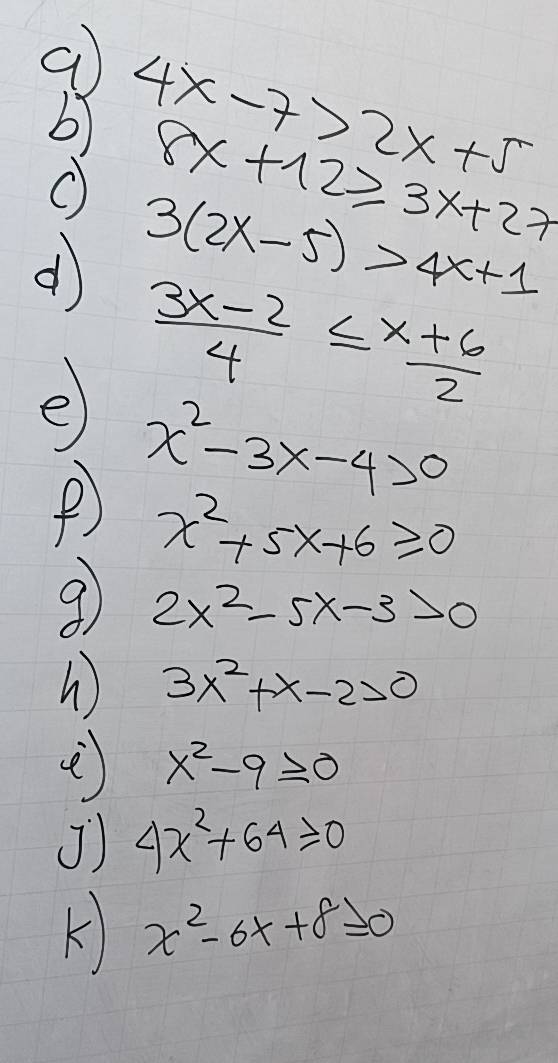 a) 4x - 7 > 2x + 5
b) 8x + 12 ≥ 3x + 27
c) 3(2x - 5) > 4x + 1
d) (3x - 2)/4 ≤ (x + 6)/2
e) x² - 3x - 4 > 0
f) x² + 5x + 6 ≥ 0
g) 2x² - 5x - 3 > 0
h) 3x² + x - 2 > 0
i) x² - 9 ≥ 0
j) 4x² + 64 ≥ 0
k) x² - 6x + 8 ≥ 0